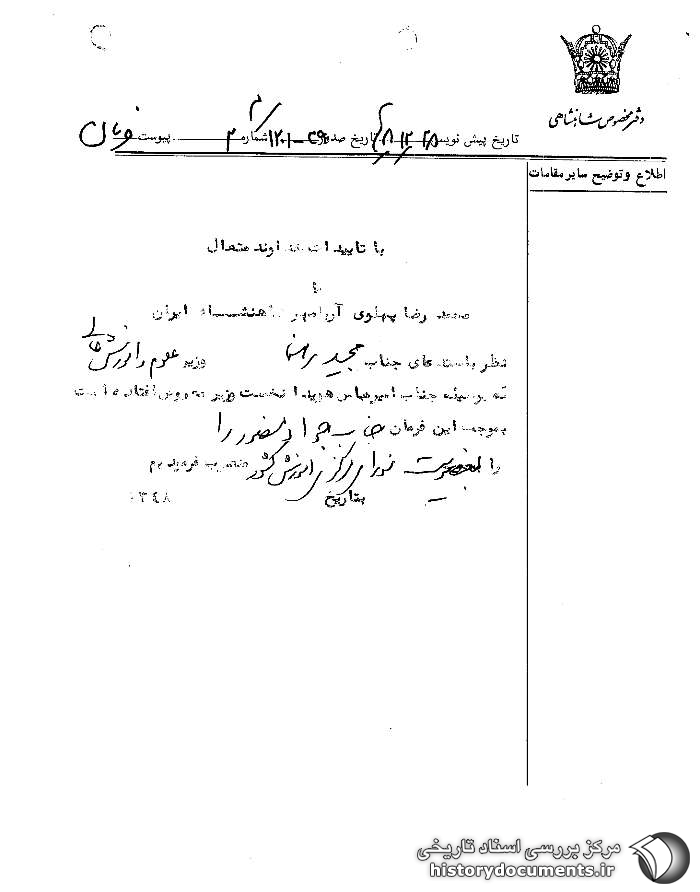 دفتر مخصوص شاهنشاهی
تاریخ پیش نویس ۴۸/۱۲/۲۸ تاریخ صدور شماره ۲ پیوست فرمان
اطلاع و توضیح سایر مقامات
با تاییدات خداوند متعال
ما
محمد رضا پهلوی آریامهر شاهنشاه ایران
نظر باستدعای جناب مجید رهنما وزیر علوم و آموزش عالی
که بوسیله جناب امیرعباس هویدا نخست وزیر معروض افتاده است
بموجب این فرمان جناب جواد منصور را
را بعضویت شورای مرکزی آموزش کشور منصوب فرمودیم
بتاریخ ۱۳۴۸
مرکز بررسی اسناد تاریخی
historydocuments.ir